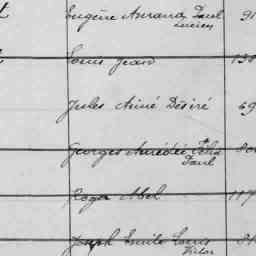 Eugène Amand Paul 91
Lucien
Louis Jean 138
Jules Aimé Désiré 69
Georges Amédée Féli
Paul
Roger Abel 117
Joseph Emile Louis
Victor